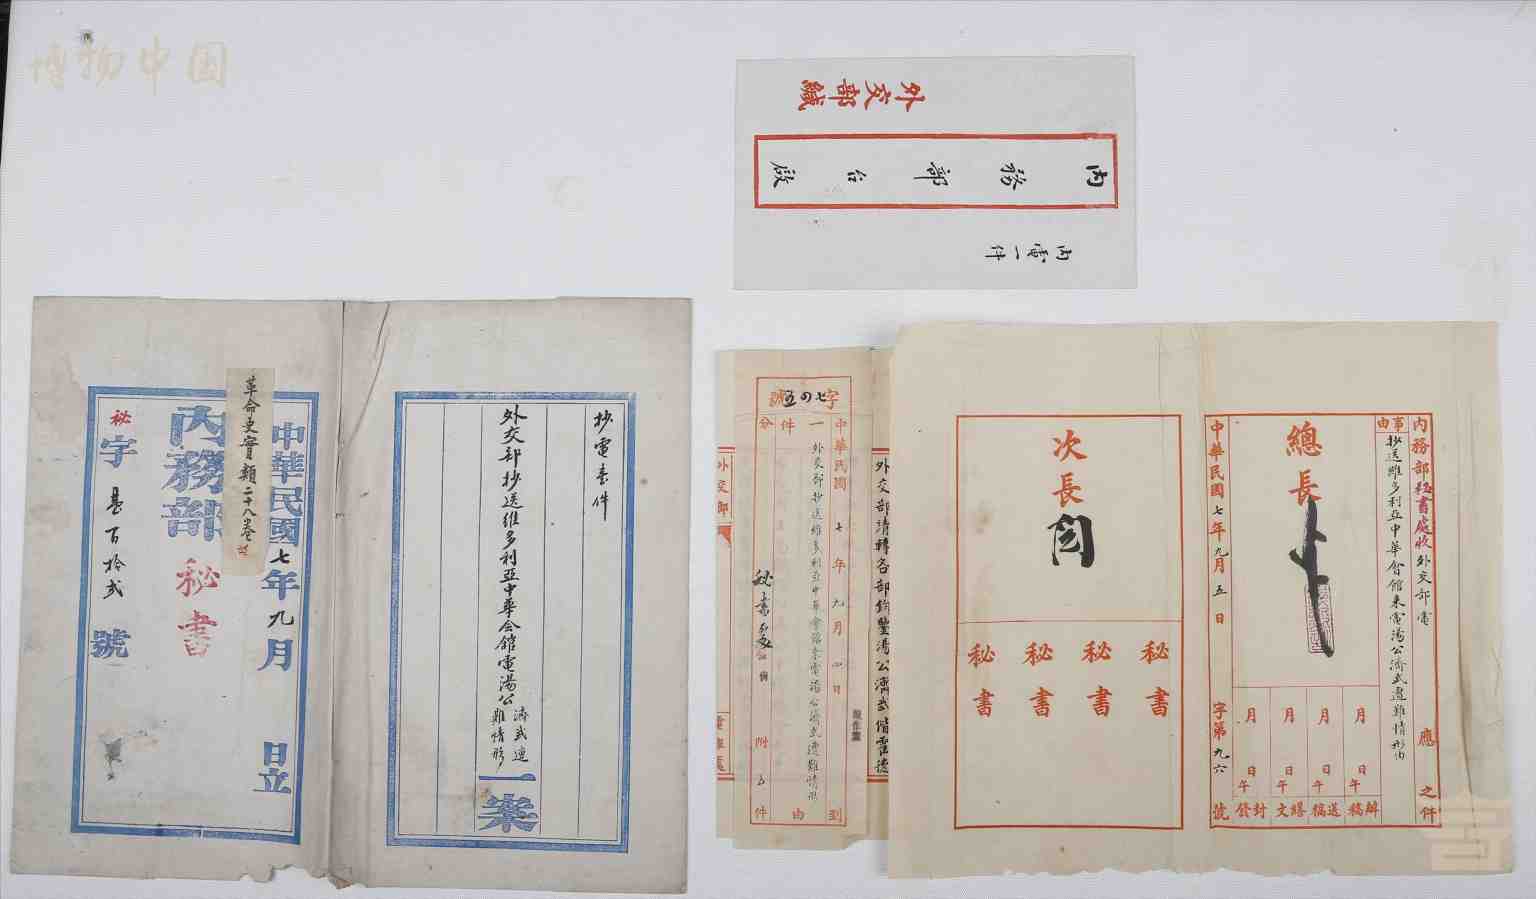 博物中国
外交部缄
内務部台啟
内電一件
中華民國七年九月 日立
革命史實類二十八卷
内務部秘書
秘字 壹百拾弍 號
抄電壹件
外交部抄送維多利亞中華会館電湯公濟武遭難情形一案
字七の五號
中華民國 七年 九月 四日 到
一件 外交部抄送維多利亞中華會館來電湯公濟武遭難情形 由
秘書處
分 附 件
外交部
外交部請轉各部鈞鑒湯公濟武偕霍德
内務部秘書處收外交部電 應 之件
事由
抄送維多利亞中華會館來電湯公濟武遭難情形由
總長
月 日 午 辦稿
月 日 午 送稿
月 日 午 繕文
月 日 午 封發
中華民國七年九月五日 字第九六號
次長
秘書
秘書
秘書
秘書